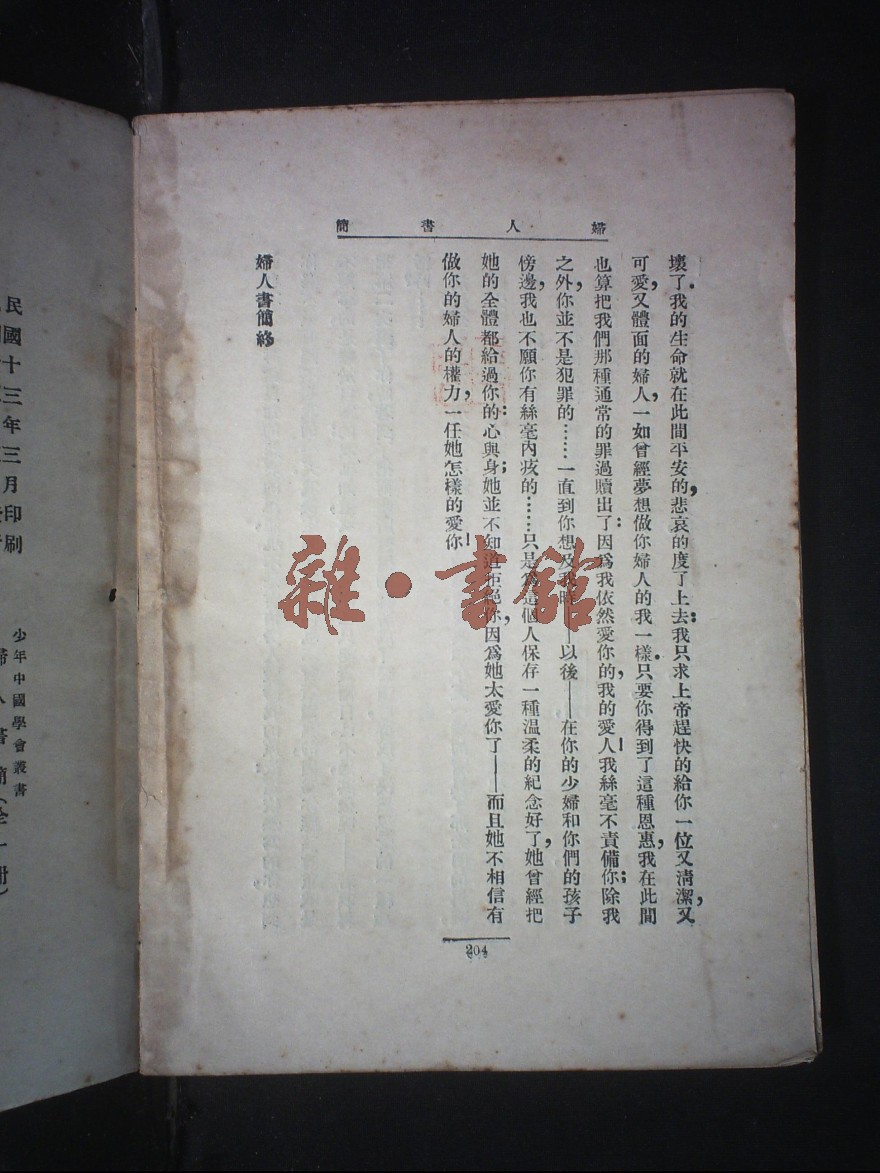 婦人書簡
壞了。我的生命就在此間平安的,悲哀的度了上去:我只求上帝趕快的給你一位又清潔,又
可愛,又體面的婦人,一如曾經夢想做你婦人的我一樣。只要你得到了這種恩惠,我在此間
也算把我們那種通常的罪過贖出了:因爲我依然愛你的,我的愛人!我絲毫不責備你;除我
之外,你並不是犯罪的……一直到你想及我時——以後——在你的少婦和你們的孩子
傍邊,我也不願你有絲毫內疚的……只是爲這個人保存一種溫柔的紀念好了,她曾經把
她的全體都給過你的:心與身;她並不知道拒絕你,因爲她太愛你了——而且她不相信有
做你的婦人的權力,一任她怎樣的愛你!
婦人書簡終
204
雜·書館
少年中國學會叢書
民國十三年三月印刷